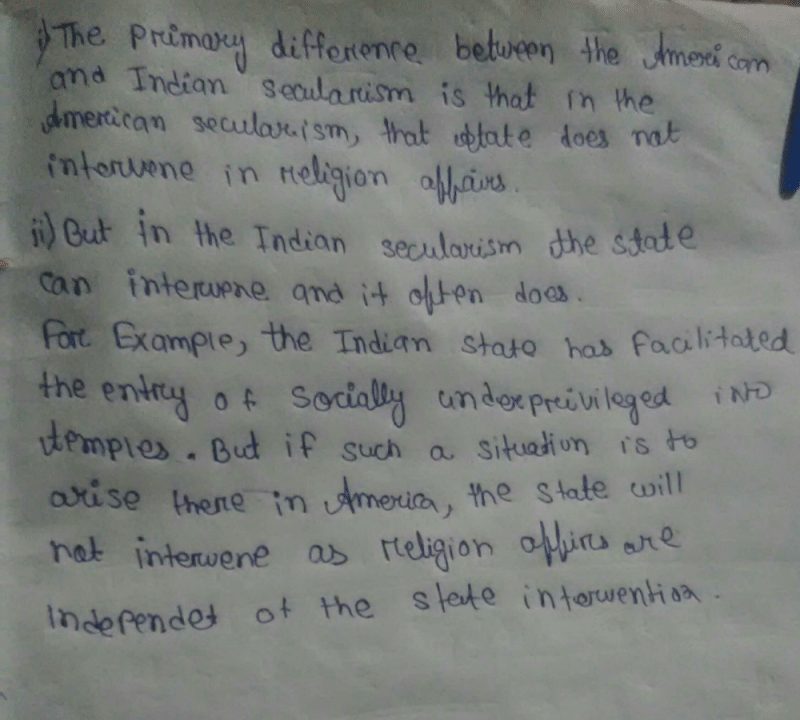 i) The primary difference between the American
and Indian secularism is that in the
American secularism, that state does not
intervene in religion affairs.
ii) But in the Indian secularism the state
can intervene and it often does.
For Example, the Indian state has facilitated
the entry of socially underprivileged into
temples. But if such a situation is to
arise there in America, the state will
not intervene as religion affirs are
independet of the state intervention.